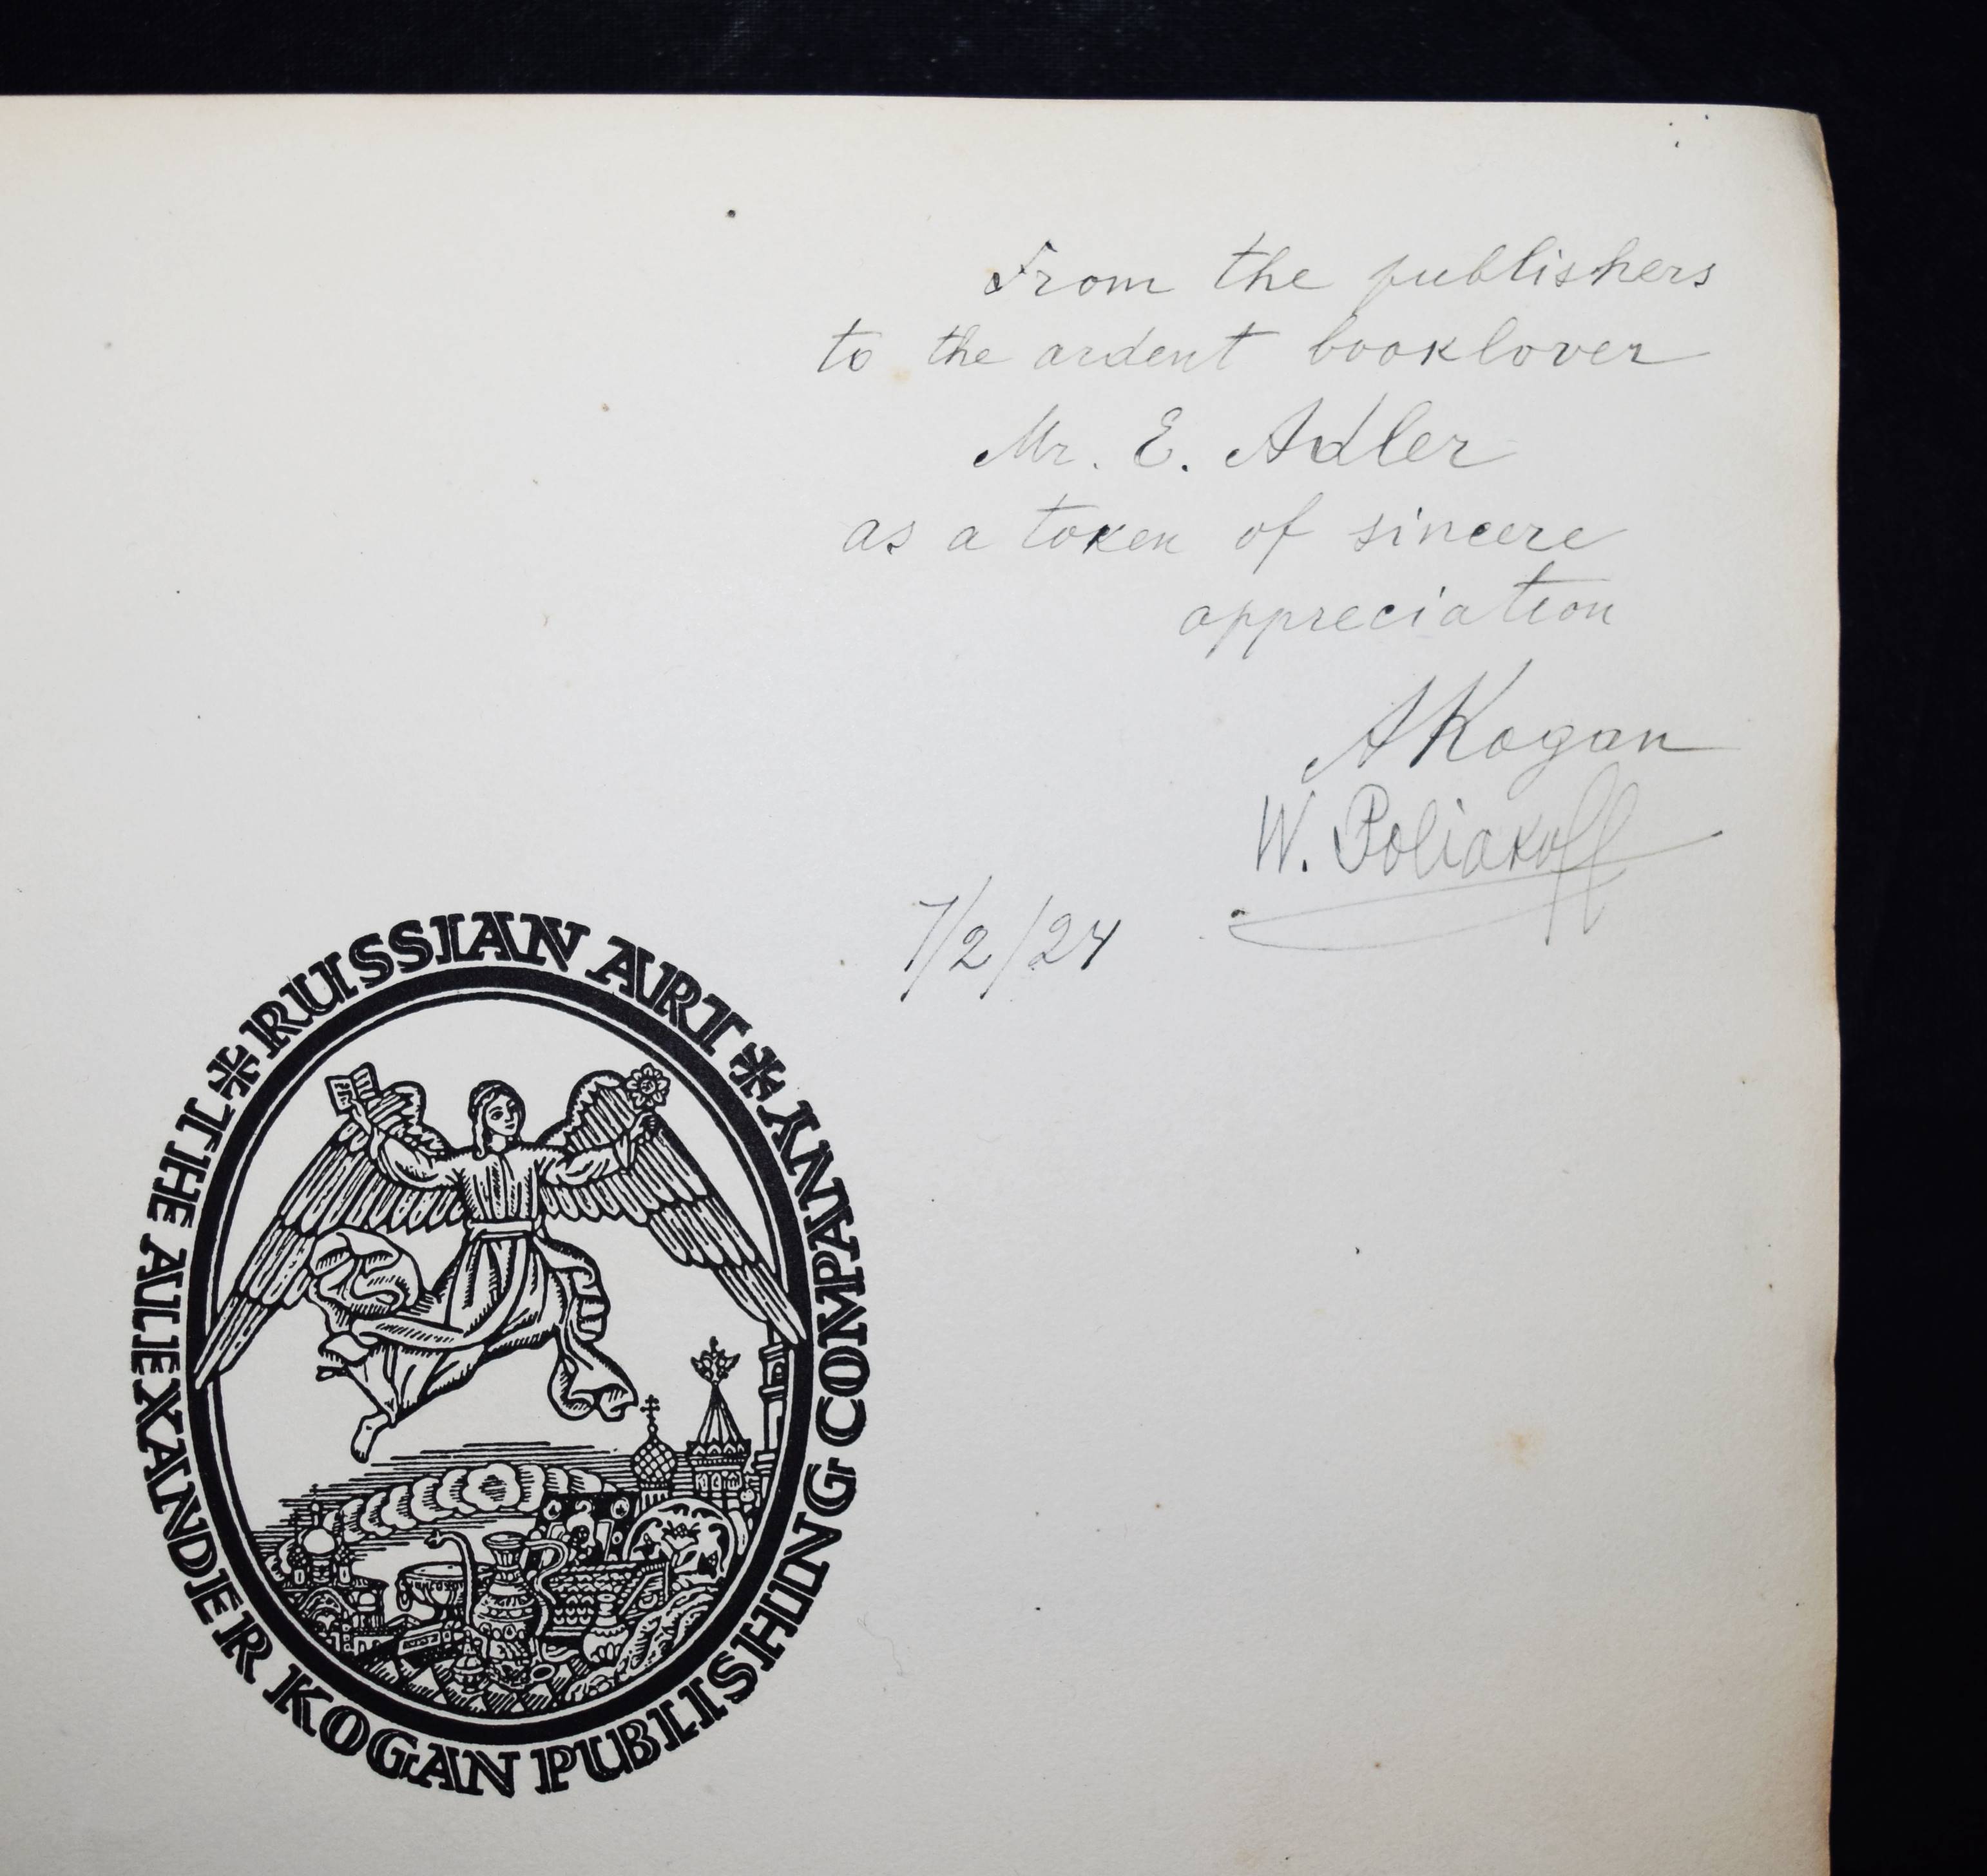 From the publishers
to the ardent booklover
Mr. E. Adler
as a token of sincere
appreciation
AKogan
W. Poliakoff
7/2/24
THE ALEXANDER KOGAN PUBLISHING COMPANY * RUSSIAN ART *